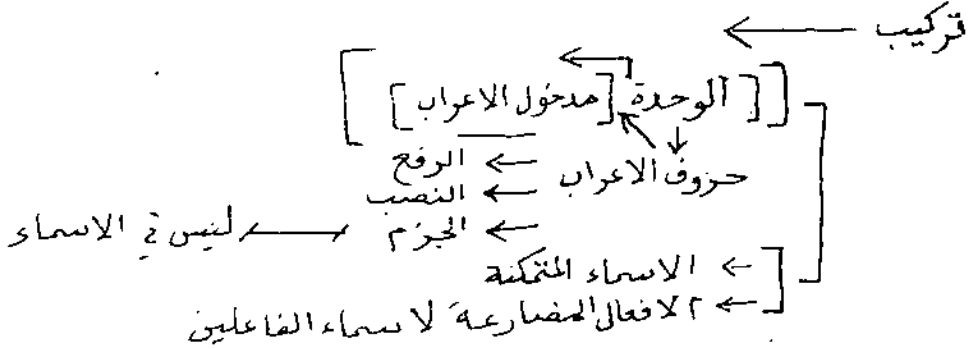 تركيب
[ [ الوحدة [ مدخول الاعراب ] ]
حروف الاعراب
الرفع
النصب
الجزم ليس في الاسماء
الاسماء المتمكنة
الافعال المضارعة لاسماء الفاعلين